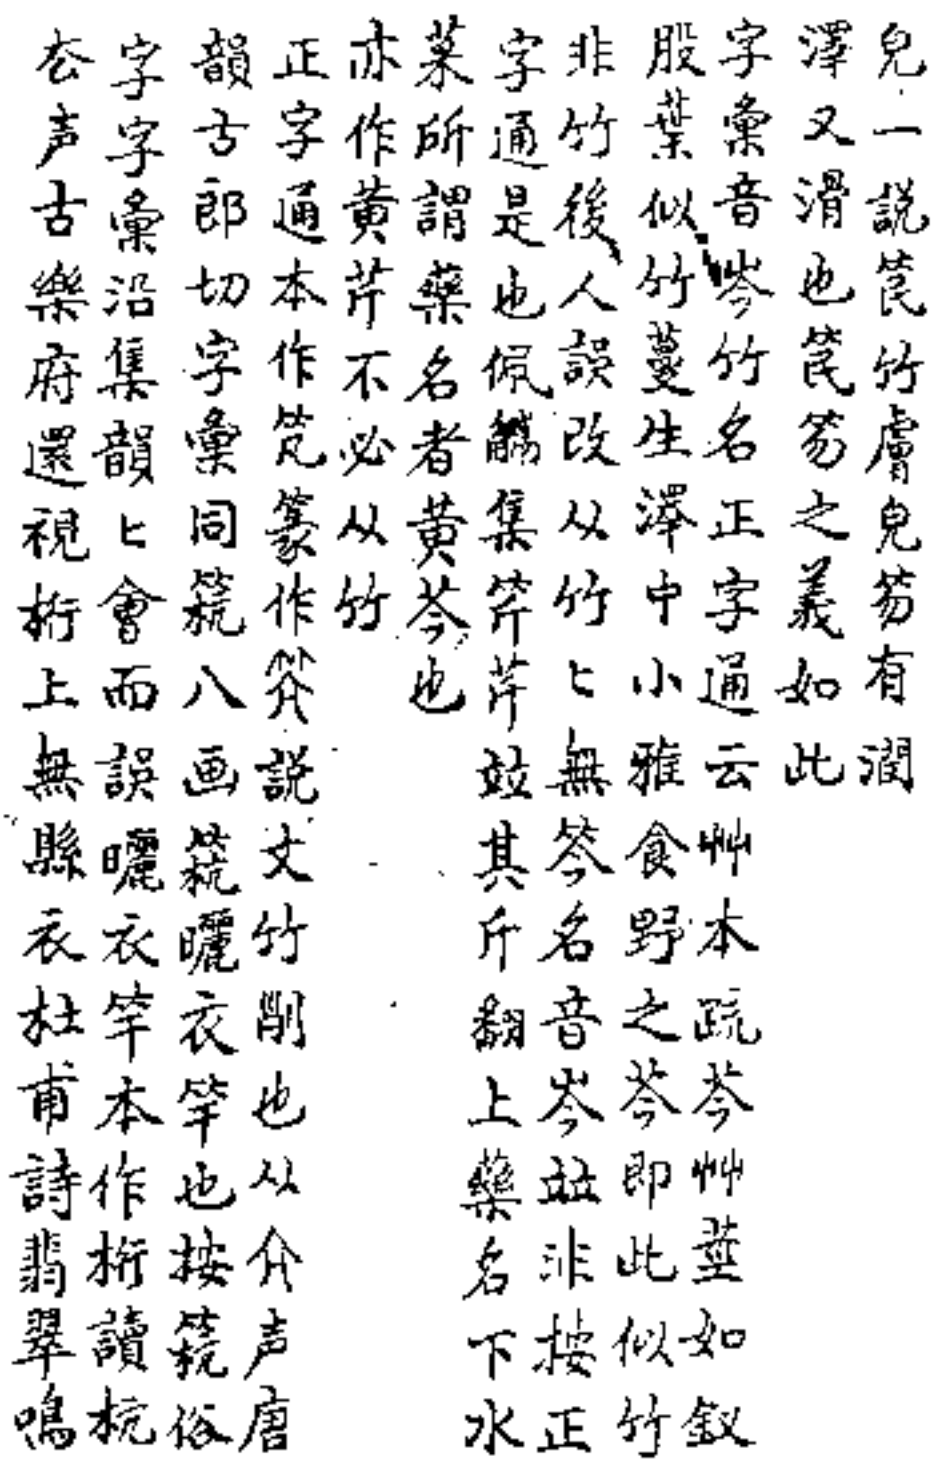 皃一説笢竹膚皃笏有潤
澤又滑也笢笏之義如此
字彙音岑竹名正字通云艸本疏芩艸莖如釵
股葉似竹蔓生澤中小雅食野之芩即此似竹
非竹後人誤改从竹〻無笒名音岑並非按正
字通是也佩觿集笒芹並其斤翻上藥名下水
菜所謂藥名者黄芩也
亦作黄芹不必从竹
正字通本作笐篆作䇦説文竹剛也从亢声唐
韻古郎切字彙同䈣八画䈣曬衣竿也按䈣俗
字字彙沿集韻〻會而誤曬衣竿本作桁讀杭
去声古樂府還視桁上無縣衣杜甫詩翡翠鳴